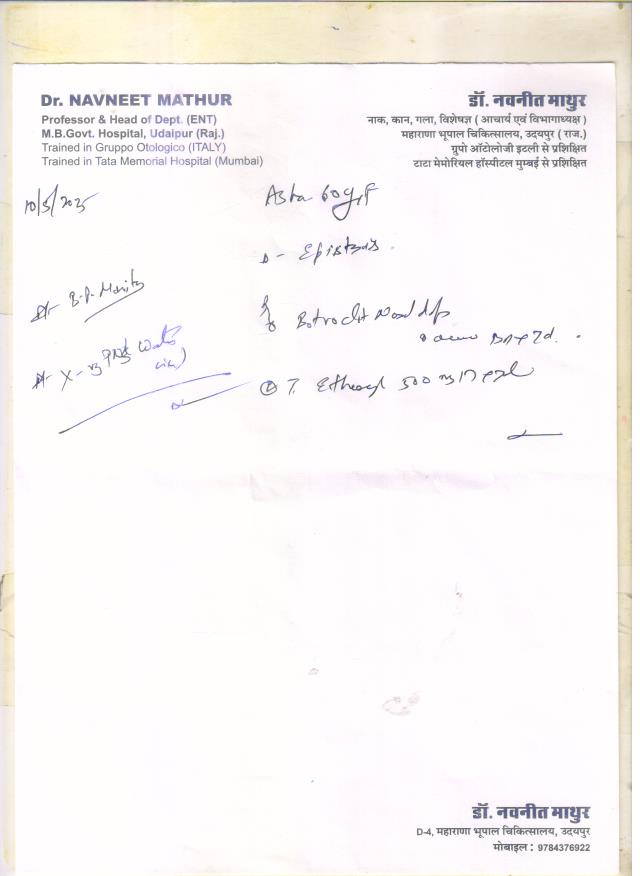 Dr. NAVNEET MATHUR
Professor & Head of Dept. (ENT)
M.B.Govt. Hospital, Udaipur (Raj.)
Trained in Gruppo Otologico (ITALY)
Trained in Tata Memorial Hospital (Mumbai)
डॉ. नवनीत माथुर
नाक, कान, गला, विशेषज्ञ ( आचार्य एवं विभागाध्यक्ष )
महाराणा भूपाल चिकित्सालय, उदयपुर ( राज.)
ग्रुपो ऑटोलोजी इटली से प्रशिक्षित
टाटा मेमोरियल हॉस्पीटल मुम्बई से प्रशिक्षित
10/5/2025
Asha 60y/F
Epistaxis
B.P. Monitor
X-ray PNS Water
view
Botroclot Nasal drops
② T. Ethamsyl 500 mg
डॉ. नवनीत माथुर
D-4, महाराणा भूपाल चिकित्सालय, उदयपुर
मोबाइल : 9784376922